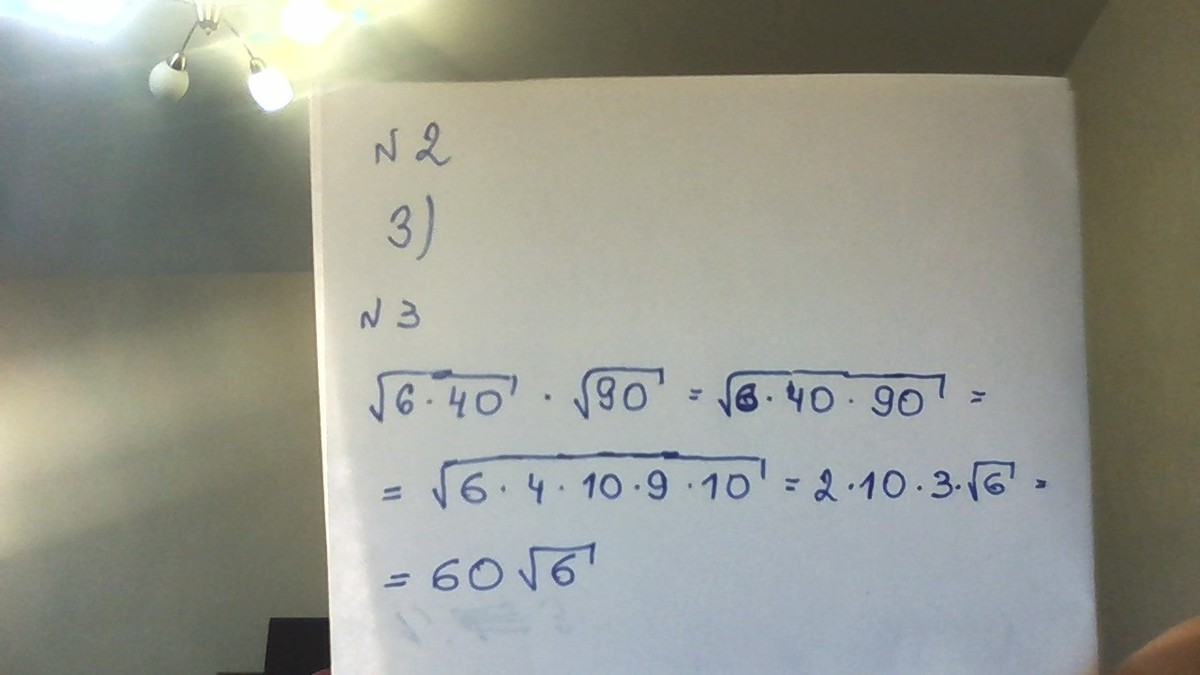 N 2
3)
N 3
√6·40 · √90 = √6·40·90 =
= √6·4·10·9·10 = 2·10·3·√6 =
= 60√6